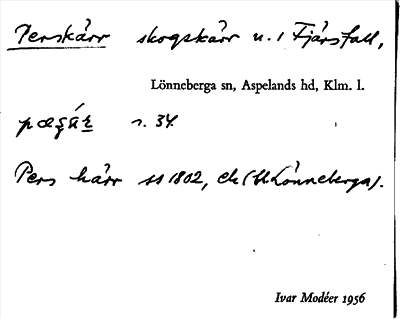 Perskärr skogskärr u. i Fjärsfall,
Lönneberga sn, Aspelands hd, Klm. l.
s. 34
Pers kärr ss 1802, ek (st Lönneberga).
Ivar Modéer 1956